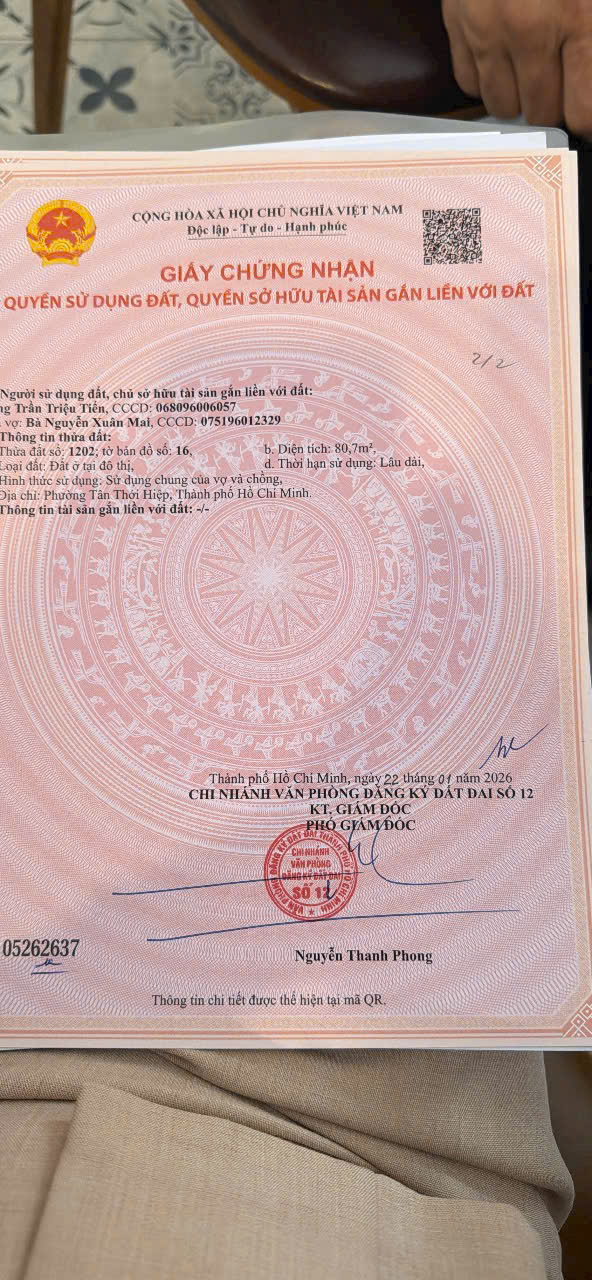 CỘNG HÒA XÃ HỘI CHỦ NGHĨA VIỆT NAM
Độc lập - Tự do - Hạnh phúc
GIẤY CHỨNG NHẬN
QUYỀN SỬ DỤNG ĐẤT, QUYỀN SỞ HỮU TÀI SẢN GẮN LIỀN VỚI ĐẤT
2/2
Người sử dụng đất, chủ sở hữu tài sản gắn liền với đất:
ng Trần Triệu Tiến, CCCD: 068096006057
vợ: Bà Nguyễn Xuân Mai, CCCD: 075196012329
Thông tin thửa đất:
Thửa đất số: 1202; tờ bản đồ số: 16, b. Diện tích: 80,7m²,
Loại đất: Đất ở tại đô thị, d. Thời hạn sử dụng: Lâu dài,
Hình thức sử dụng: Sử dụng chung của vợ và chồng,
Địa chỉ: Phường Tân Thới Hiệp, Thành phố Hồ Chí Minh.
Thông tin tài sản gắn liền với đất: -/-
Thành phố Hồ Chí Minh, ngày 22 tháng 01 năm 2026
CHI NHÁNH VĂN PHÒNG ĐĂNG KÝ ĐẤT ĐAI SỐ 12
KT. GIÁM ĐỐC
PHÓ GIÁM ĐỐC
VĂN PHÒNG ĐĂNG KÝ ĐẤT ĐAI THÀNH PHỐ HỒ CHÍ MINH
CHI NHÁNH
VĂN PHÒNG
ĐĂNG KÝ ĐẤT ĐAI
SỐ 12
05262637
Nguyễn Thanh Phong
Thông tin chi tiết được thể hiện tại mã QR.